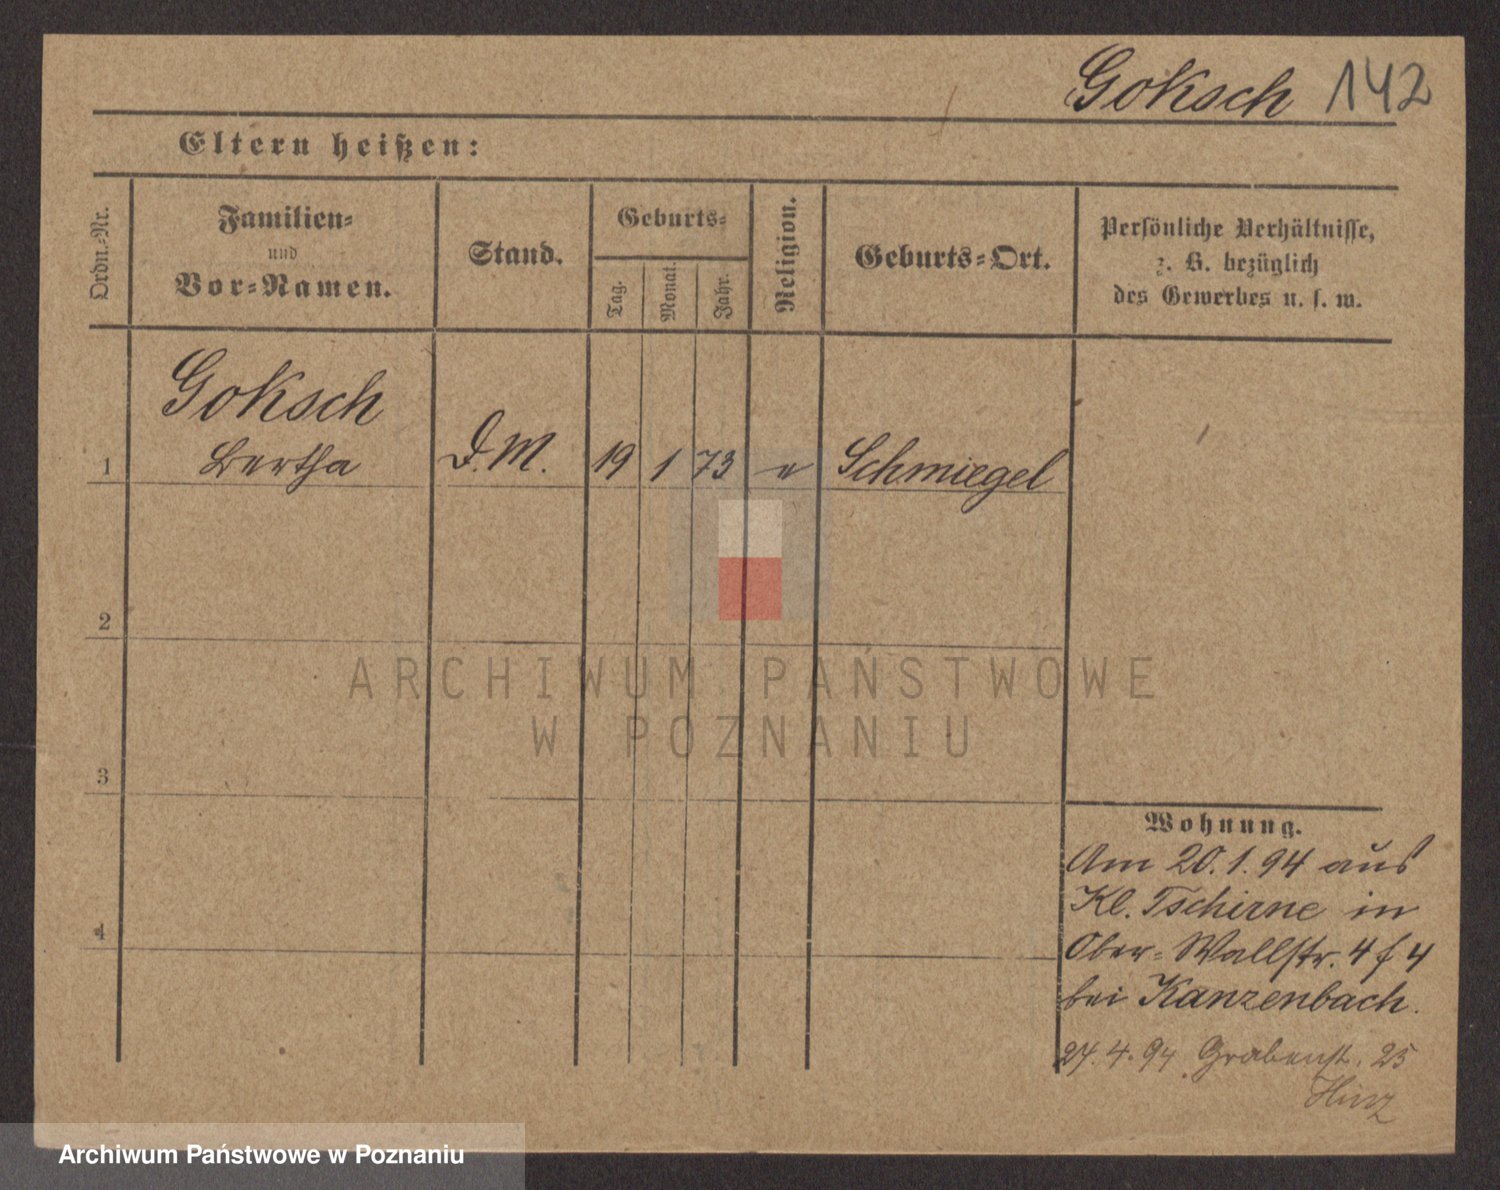 Goksch 142
Eltern heißen:
Ordn.-Nr.
Familien-
und
Vor-Namen.
Stand.
Geburts-
Tag.
Monat.
Jahr.
Religion.
Geburts-Ort.
Persönliche Verhältnisse,
z. B. bezüglich
des Gewerbes u. s. w.
Goksch
1 Bertha D.M. 19 1 73 e Schmiegel
2
3
4
ARCHIWUM PAŃSTWOWE
W POZNANIU
Wohnung.
Am 20.1.94 aus
Kl. Tschirne in
Ober-Wallstr. 4 f 4
bei Kanzenbach.
24.4.94 Grabenst. 25
Hinz
Archiwum Państwowe w Poznaniu